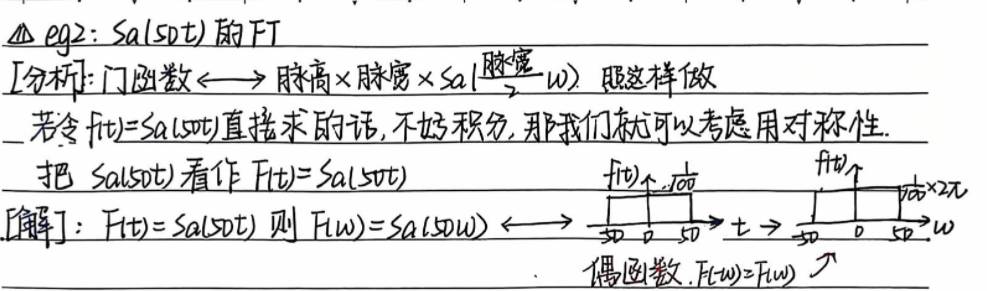 eg2: Sa(50t) 的FT
[分析]: 门函数 ⟷ 脉高×脉宽×Sa(脉宽/2 ω) 照这样做
若令 f(t)=Sa(50t)直接求的话,不好积分,那我们就可以考虑用对称性.
把 Sa(50t) 看作 F(t)=Sa(50t)
[解]: F(t)=Sa(50t) 则 F(ω)=Sa(50ω) ⟷
f(t) 1/100
-50 0 50 t →
f(ω) 1/100×2π
-50 0 50 ω
偶函数.F(-ω)=F(ω)